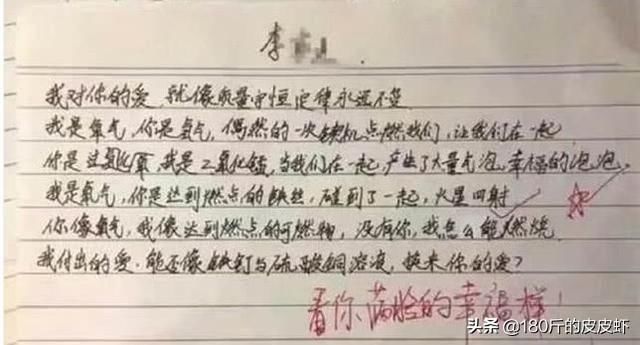 李
我对你的爱 就像质量守恒定律永远不变
我是氧气,你是氢气,偶然的一次契机点燃我们,让我们在一起
你是过氧化氢,我是二氧化锰,当我们在一起,产生了大量气泡,幸福的泡泡
我是氧气,你是达到燃点的铁丝,碰到了一起,火星四射
你像氧气,我像达到燃点的可燃物,没有你,我怎么能燃烧
我付出的爱,能否像铁钉与硫酸铜溶液,换来你的爱?
看你满脸的幸福样!
头条 @180斤的皮皮虾